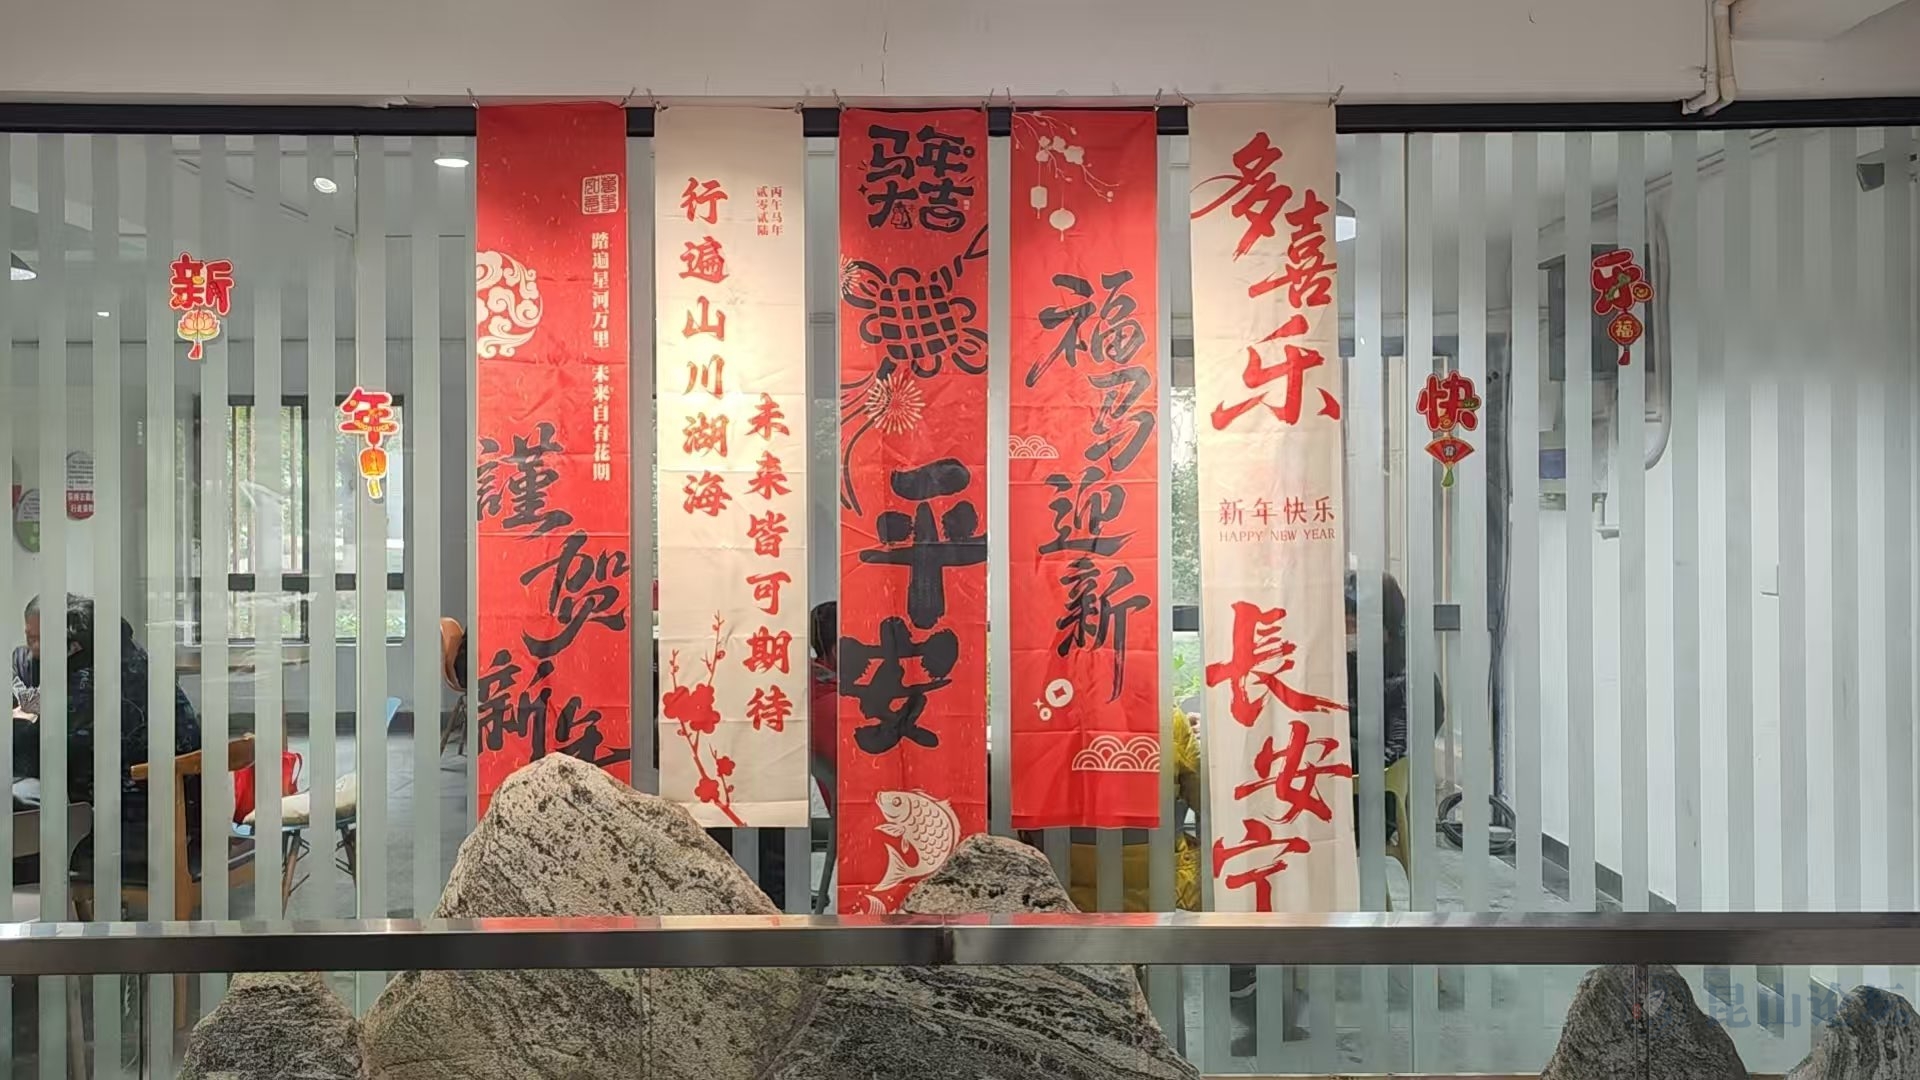 新
年
快
乐
万事如意
踏遍星河万里 未来自有花期
謹贺新年
丙午马年
贰零贰陆
行遍山川湖海
未来皆可期待
马年大吉
平安
福马迎新
多喜乐
新年快乐
HAPPY NEW YEAR
長安宁
福
昆山论坛